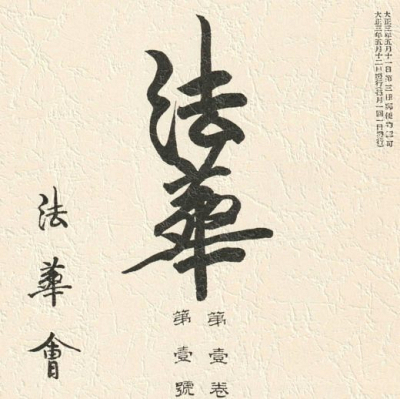 大正三年五月十一日第三種郵便物認可
大正三年五月十二日發行(每月一回一日發行)
法華
第壹卷
第壹號
法華會